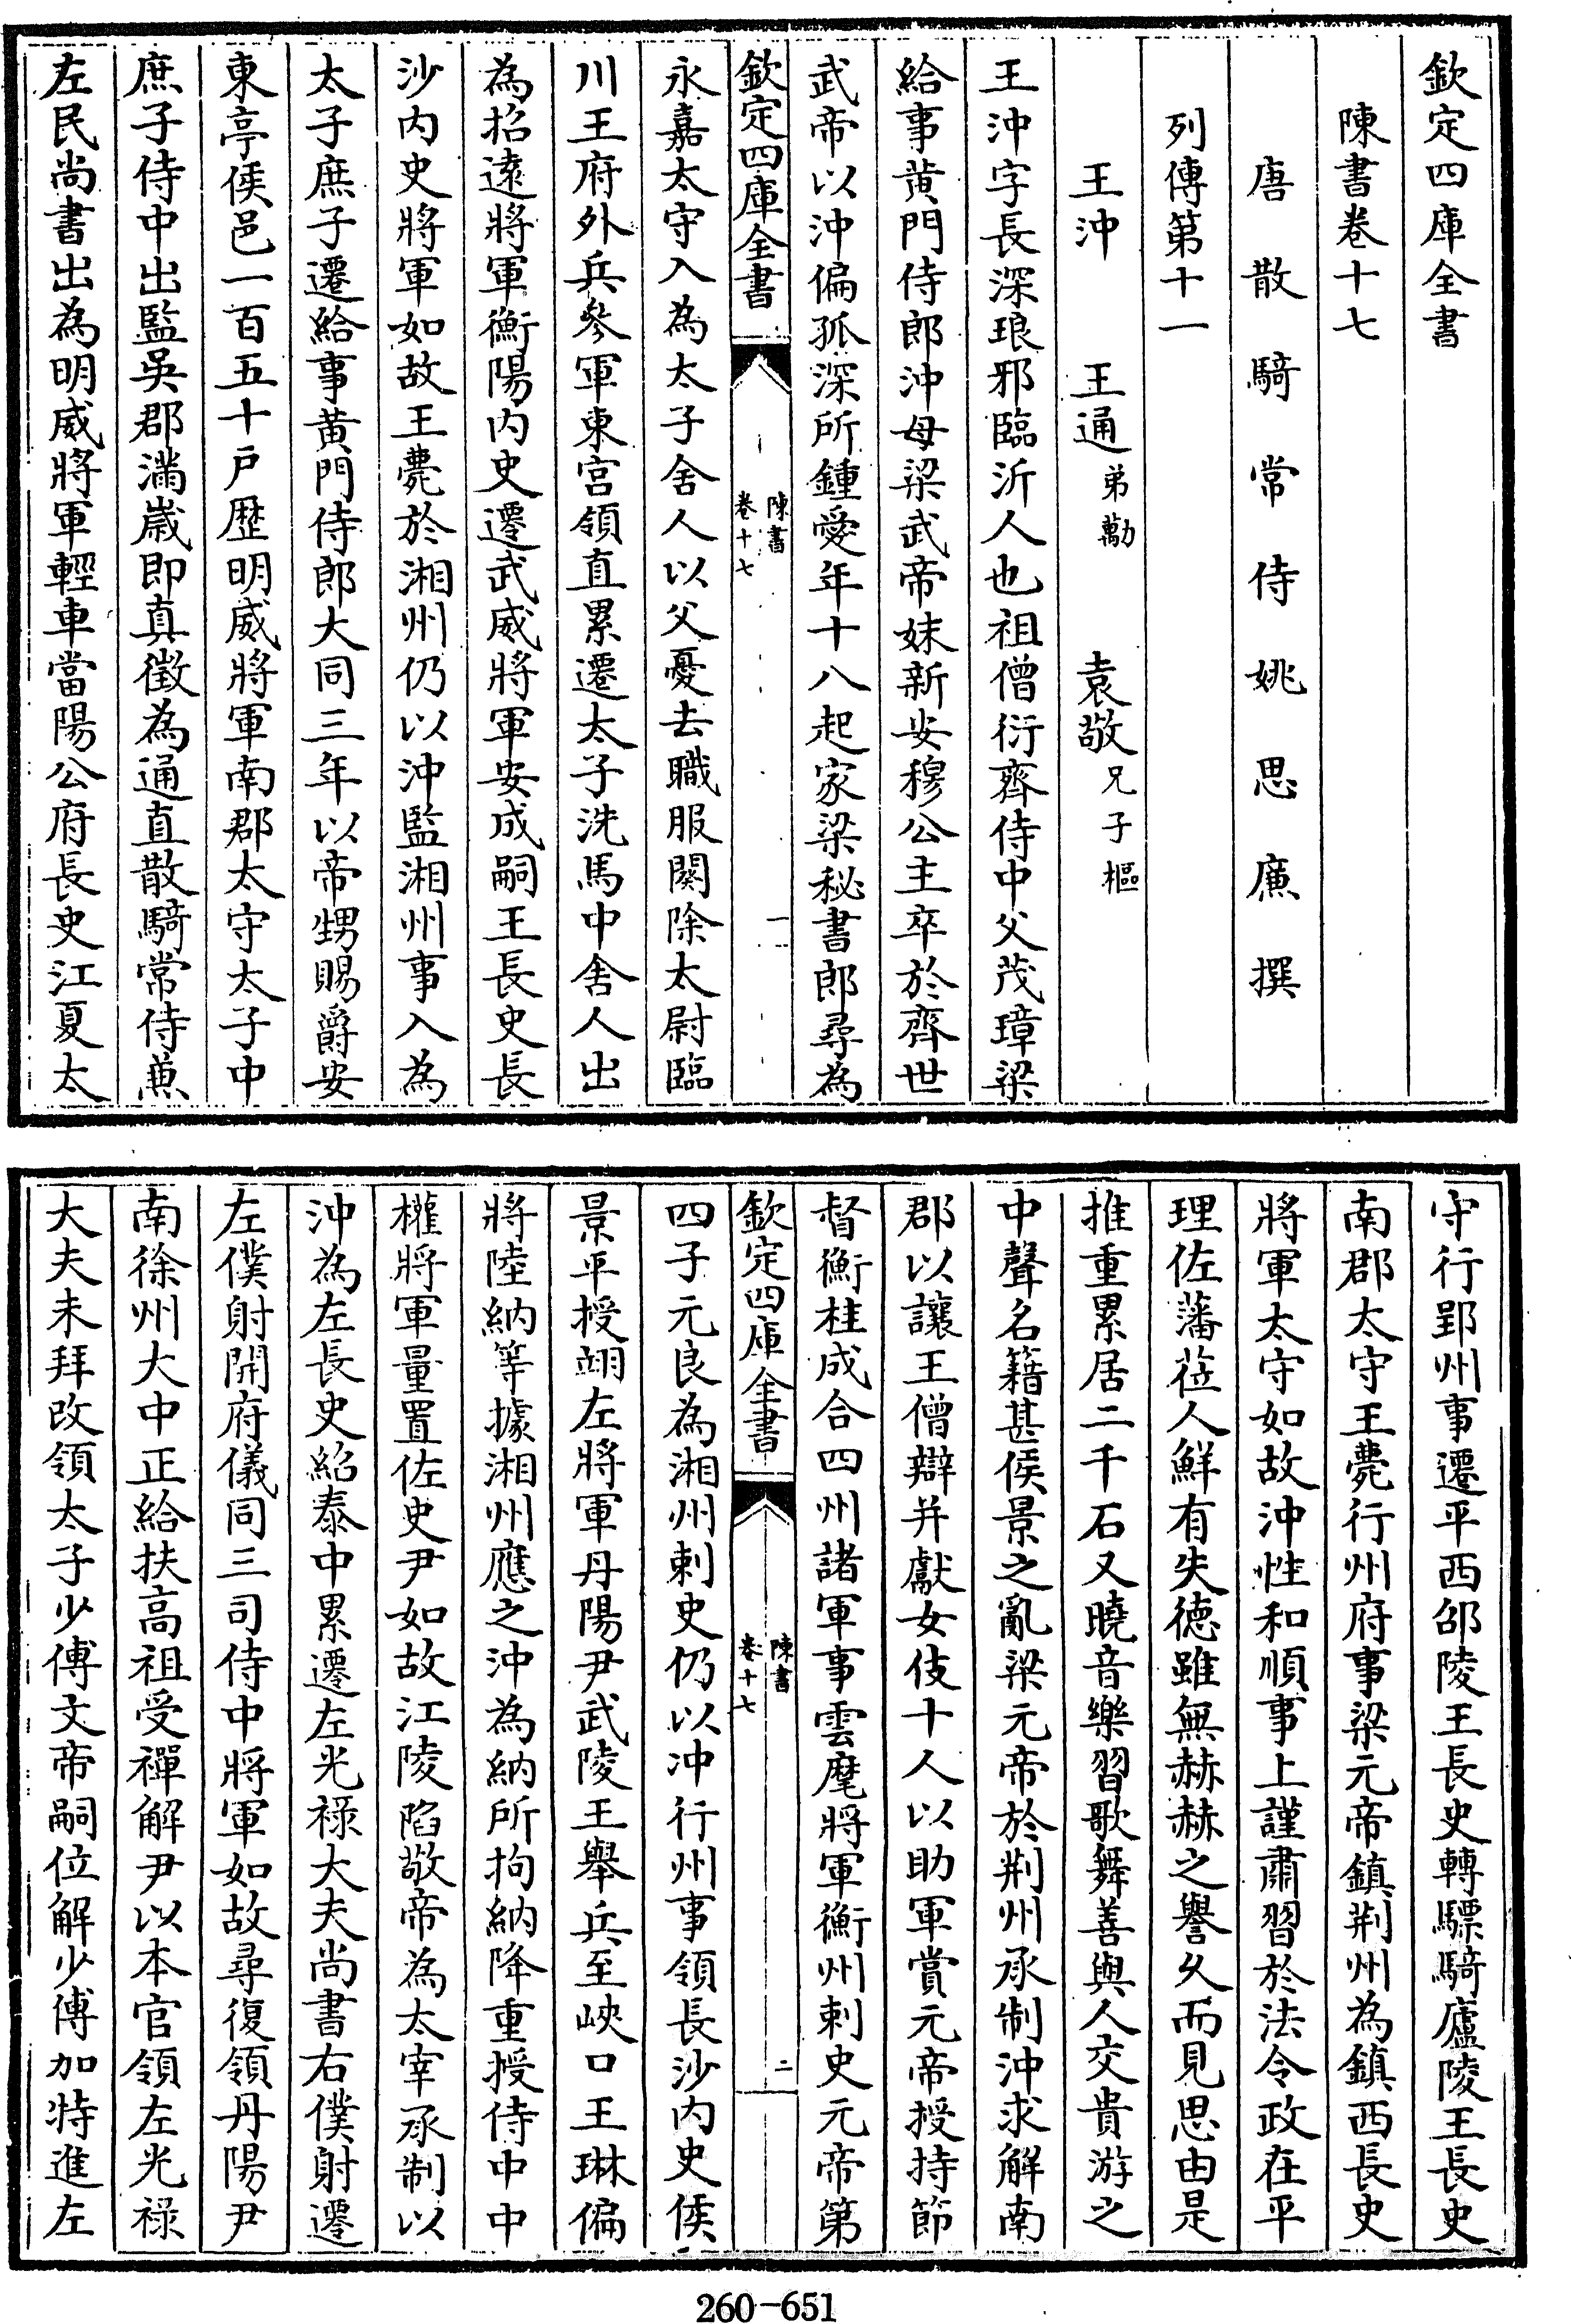 欽定四庫全書
陳書卷十七
唐散騎常侍姚思廉撰
列傳第十一
王沖 王通弟勱 袁敬兄子樞
王沖字長深琅邪臨沂人也祖僧衍齊侍中父茂璋梁
給事黄門侍郎沖母梁武帝妹新安穆公主卒於齊世
武帝以沖偏孤深所鍾愛年十八起家梁秘書郎尋為
欽定四庫全書
陳書
卷十七
一
永嘉太守入為太子舍人以父憂去職服闋除太尉臨
川王府外兵參軍東宫領直累遷太子洗馬中舍人出
為招逺將軍衡陽内史遷武威將軍安成嗣王長史長
沙内史將軍如故王薨於湘州仍以沖監湘州事入為
太子庶子遷給事黄門侍郎大同三年以帝甥賜爵安
東亭侯邑一百五十戸歴明威將軍南郡太守太子中
庶子侍中出監吳郡滿歲即真徵為通直散騎常侍兼
左民尚書出為明威將軍輕車當陽公府長史江夏太
守行郢州事遷平西邵陵王長史轉驃騎廬陵王長史
南郡太守王薨行州府事梁元帝鎮荆州為鎮西長史
將軍太守如故沖性和順事上謹肅習於法令政在平
理佐藩莅人鮮有失徳雖無赫赫之譽久而見思由是
推重累居二千石又曉音樂習歌舞善與人交貴游之
中聲名籍甚侯景之亂梁元帝於荆州承制沖求解南
郡以讓王僧辯并獻女伎十人以助軍賞元帝授持節
督衡桂成合四州諸軍事雲麾將軍衡州刺史元帝第
欽定四庫全書
陳書
卷十七
二
四子元良為湘州刺史仍以沖行州事領長沙内史侯
景平授翊左將軍丹陽尹武陵王舉兵至峽口王琳偏
將陸納等據湘州應之沖為納所拘納降重授侍中中
權將軍量置佐史尹如故江陵陷敬帝為太宰承制以
沖為左長史紹泰中累遷左光禄大夫尚書右僕射遷
左僕射開府儀同三司侍中將軍如故尋復領丹陽尹
南徐州大中正給扶高祖受禪解尹以本官領左光禄
大夫未拜改領太子少傅文帝嗣位解少傅加特進左
260-651